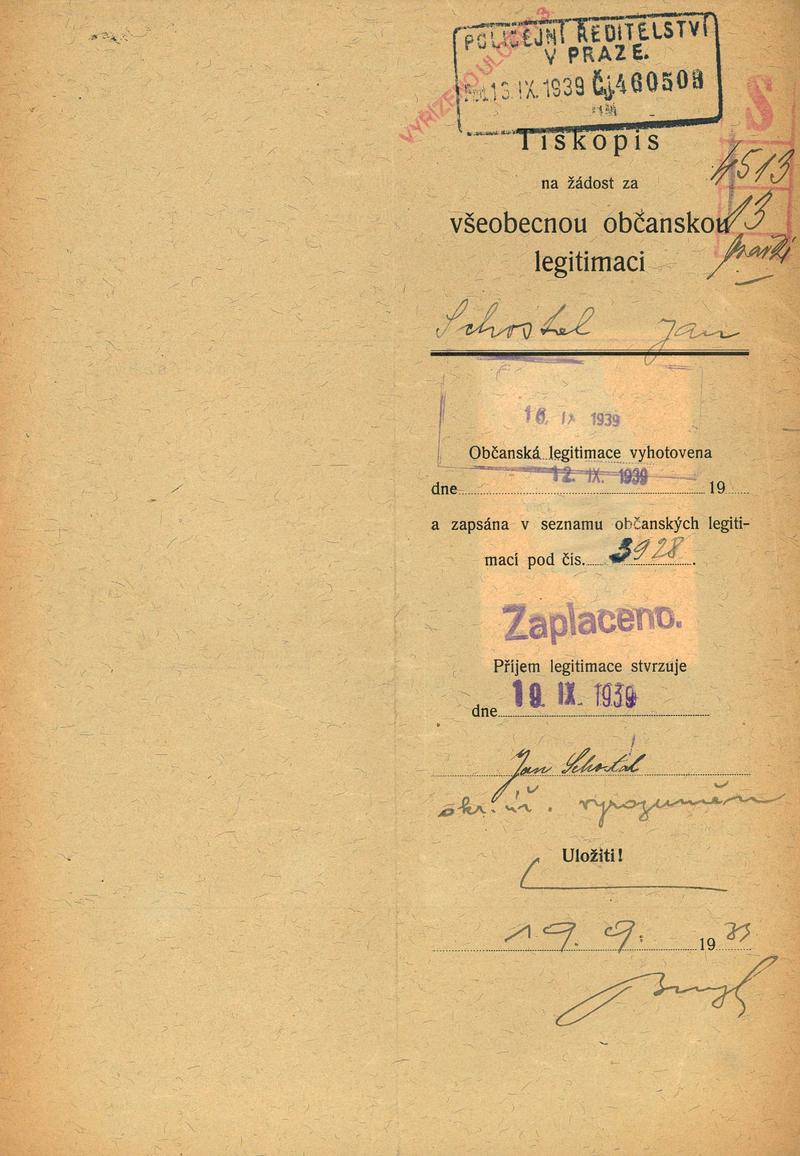 POLICEJNÍ ŘEDITELSTVÍ
V PRAZE.
IX. 1939 Čj. 460503
VYŘÍZENO ULOŽ
S
Tiskopis
4513
na žádost za
13
všeobecnou občanskou
legitimaci
Schostal Jan
16. IX 1939
Občanská legitimace vyhotovena
12. IX. 1939
dne 19
a zapsána v seznamu občanských legiti-
mací pod čís. 3928.
Zaplaceno.
Příjem legitimace stvrzuje
19. IX. 1939
dne
Jan Schostal
okr. úř. vyrozuměn
Uložiti!
19. 9. 1939